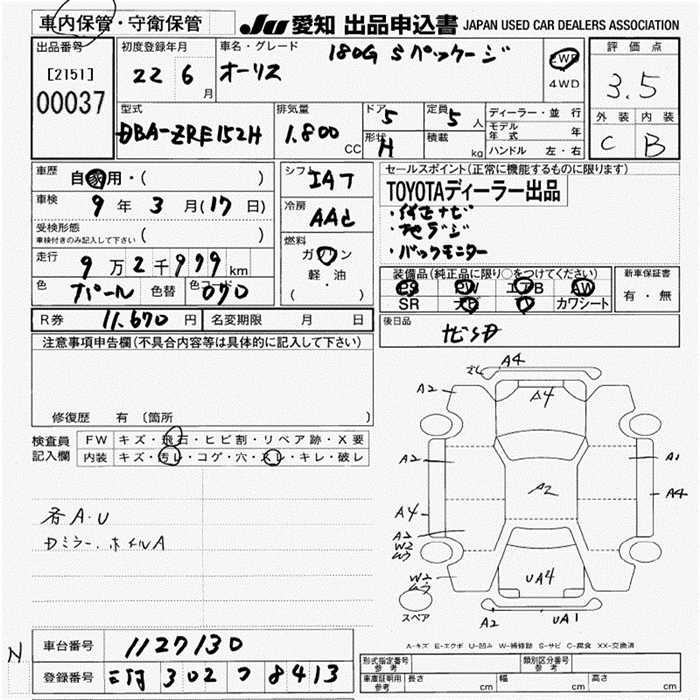 車内保管・守衛保管
JU 愛知 出品申込書 JAPAN USED CAR DEALERS ASSOCIATION
出品番号
[2151]
00037
初度登録年月
22 6 月
車名・グレード
180G Sパッケージ
オーリス
2WD
4WD
評価点
3.5
外装 内装
C B
型式
DBA-ZRE152H
排気量
1.800 CC
ドア
5
形状
H
定員
5 人
積載
kg
ディーラー・並行
モデル年式 年
ハンドル 左・右
車歴
自家用・( )
車検
9 年 3 月(17 日)
受検形態
車検付きのみ記入して下さい ( )
走行
9 万 2 千 979 km
色
パール
色替
色コード
070
シフト
IAT
冷房
AAC
燃料
ガソリン
軽・油
( )
セールスポイント(正常に機能するものに限ります)
TOYOTAディーラー出品
・純正ナビ
・地デジ
・バックモニター
装備品(純正品に限り○をつけてください)
PS PW エアB AW
SR ナビ TV カワシート
新車保証書
有・無
R券 11.670 円 名変期限 月 日
後日品
ナビSD
注意事項申告欄(不具合内容等は具体的に記入して下さい)
修復歴 有 〔箇所 〕
検査員
記入欄
FW キズ・飛石・ヒビ割・リペア跡・X要
内装 キズ・汚レ・コゲ・穴・スレ・キレ・破レ
各A.U
Dミラー.ホイルA
A4
A2
A4
A2
A1
A2
A4
A4
A2
W2
W2
UA4
スペア
A2
UA1
A-キズ E-エクボ U-凹み W-補修跡 S-サビ C-腐食 XX-交換済
N
車台番号 1127130
登録番号 302 つ 8413
形式指定番号
参考
類別区分番号
参考
車庫証明用
参考
長さ cm 幅 cm 高さ cm